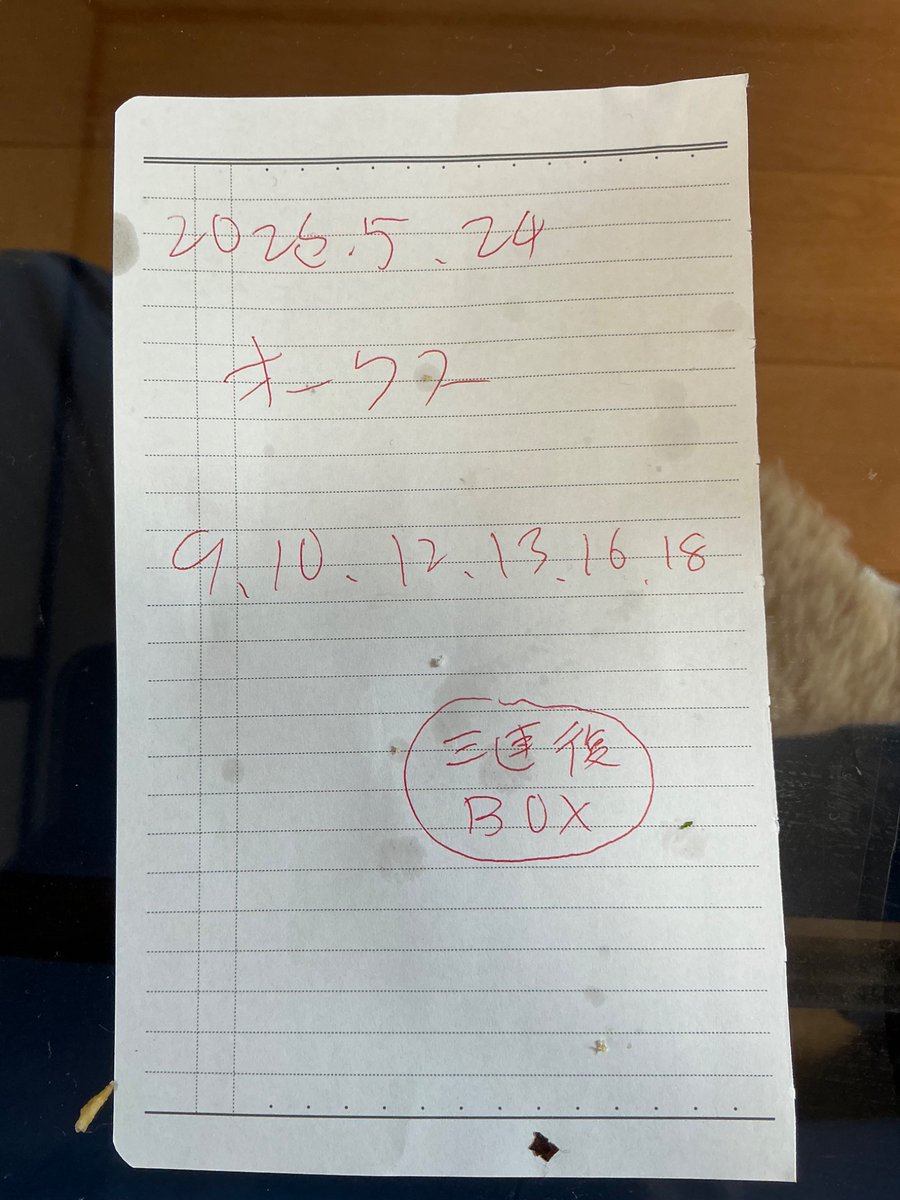 2026.5、24
オークス
9、10、12、13、16、18
三連後
BOX